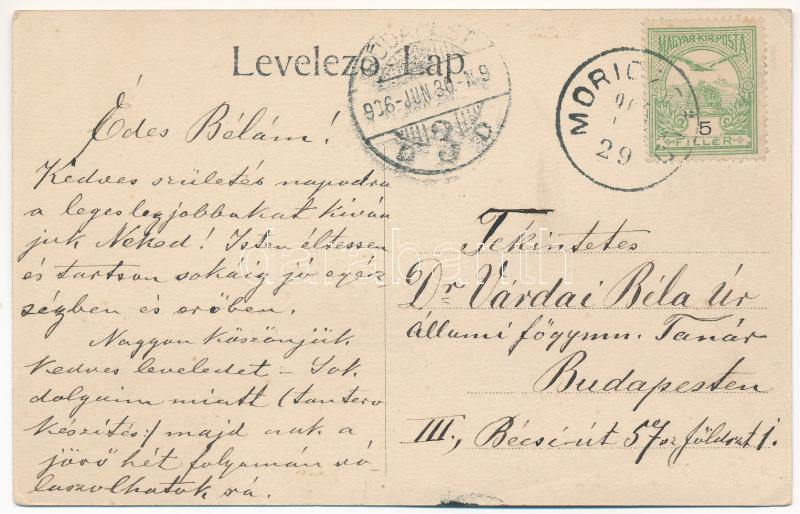 Levelező Lap
BUDAPEST
916 JUN 30
D 3 D
MORIC
29
MAGYAR KIR. POSTA
5
FILLÉR
Édes Bélám!
Kedves születés napodra
a legeslegjobbakat kíván
juk Neked! Isten éltessen
és tartson sokáig jó egész-
ségben és erőben.
Nagyon köszönjük
kedves leveledet – Sok
dolgaim miatt (tanterv
készítés:/ majd csak a
jövő hét folyamán vá-
laszolhatok rá.
Tekintetes
Dr Várdai Béla Úr
állami főgymn. Tanár
Budapesten
III., Bécsi-út 57sz földszt 1.
darabanth